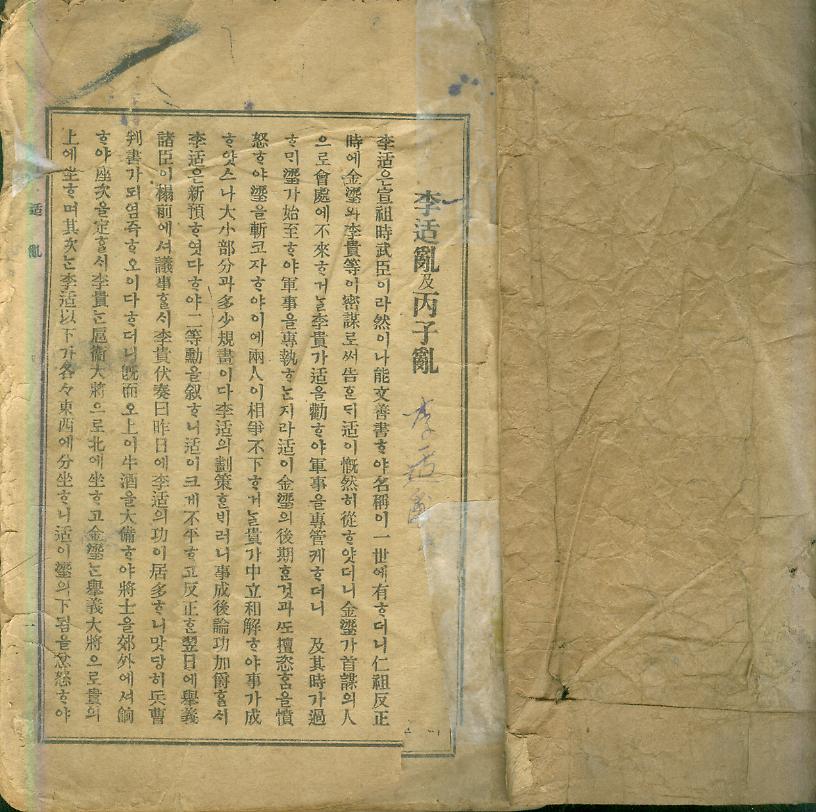 李适亂及丙子亂
李适亂
李适은宣祖時武臣이라然이나能文善書ᄒᆞ야名稱이一世에有ᄒᆞ더니仁祖反正
時에金瑬와李貴等이密謀로써告ᄒᆞᆫᄃᆡ适이慨然히從ᄒᆞ얏더니金瑬가首謀의人
으로會處에不來ᄒᆞ거ᄂᆞᆯ李貴가适을勸ᄒᆞ야軍事을專管케ᄒᆞ더니 及其時가過
ᄒᆞᄆᆡ瑬가始至ᄒᆞ야軍事을專執ᄒᆞᄂᆞᆫ지라适이金瑬의後期ᄒᆞᆫ것과ᄯᅩ擅恣ᄒᆞᆷ을憤
怒ᄒᆞ야瑬을斬코자ᄒᆞ야이에兩人이相爭不下ᄒᆞ거ᄂᆞᆯ貴가中立和解ᄒᆞ야事가成
ᄒᆞ얏스나大小部分과多少規畫이다李适의劃策ᄒᆞᆫᄇᆡ러니事成後論功加爵ᄒᆞᆯᄉᆡ
李适은新預ᄒᆞ엿다ᄒᆞ야二等勳을叙ᄒᆞ니适이크게不平ᄒᆞ고反正ᄒᆞᆫ翌日에擧義
諸臣이榻前에셔議事ᄒᆞᆯᄉᆡ李貴伏奏曰昨日에李适의功이居多ᄒᆞ니맛당히兵曹
判書가되염즉ᄒᆞ오이다ᄒᆞ더니旣而오上이牛酒을大備ᄒᆞ야將士을郊外에셔餉
ᄒᆞ야座次을定ᄒᆞᆯᄉᆡ李貴ᄂᆞᆫ扈衛大將으로北에坐ᄒᆞ고金瑬ᄂᆞᆫ擧義大將으로貴의
上에坐ᄒᆞ며其次ᄂᆞᆫ李适以下가各々東西에分坐ᄒᆞ니适이瑬의下됨을忿怒ᄒᆞ야
适亂
一